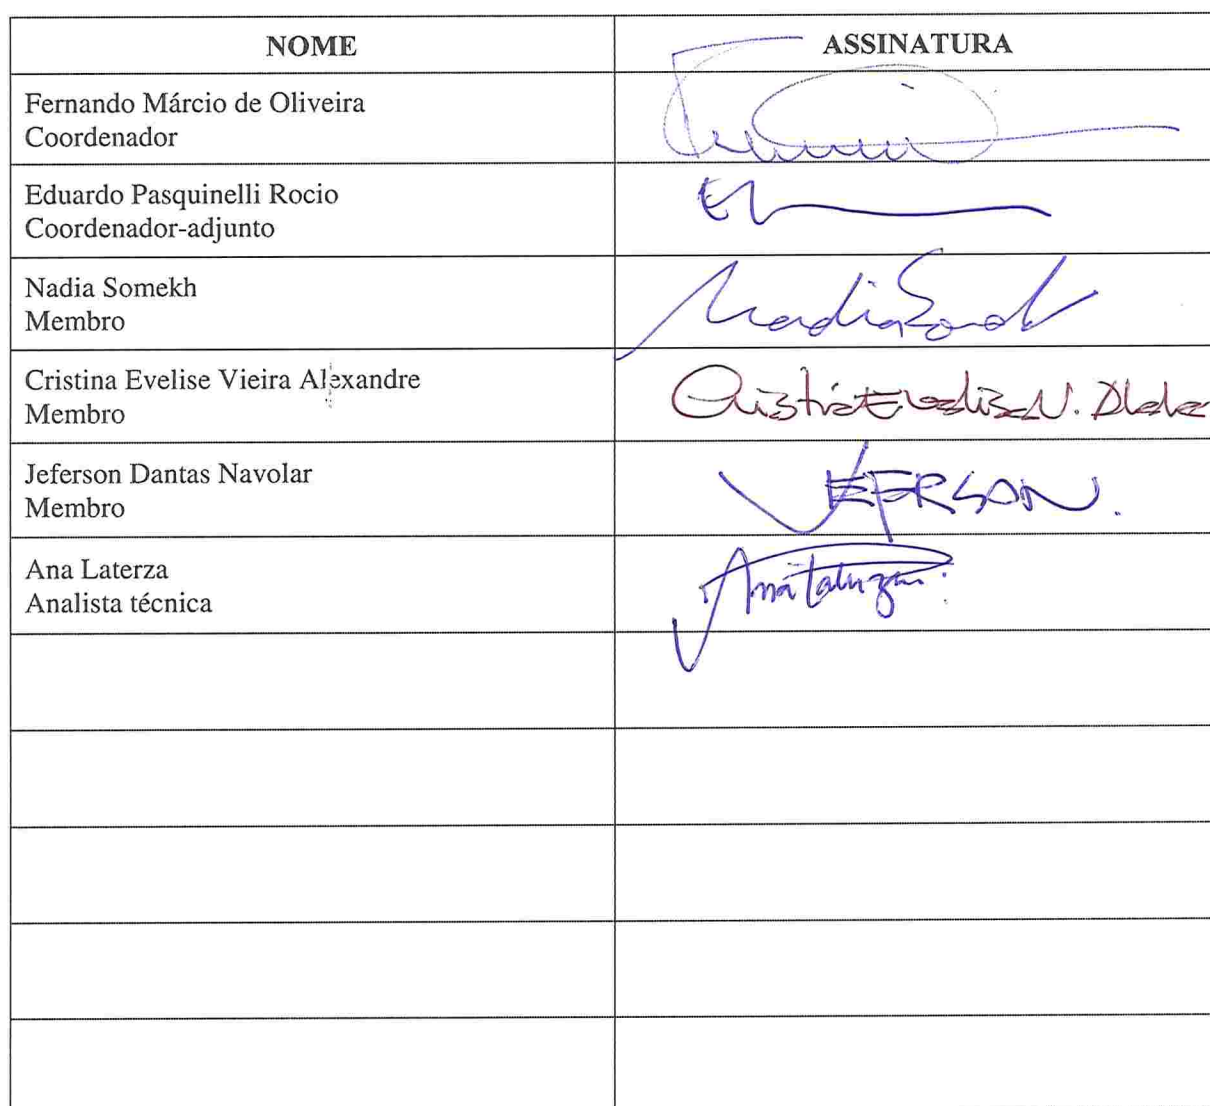 NOME ASSINATURA
Fernando Márcio de Oliveira
Coordenador
Eduardo Pasquinelli Rocio
Coordenador-adjunto
Nadia Somekh
Membro
Nadia
Cristina Evelise Vieira Alexandre
Membro
Jeferson Dantas Navolar
Membro
JEFERSON.
Ana Laterza
Analista técnica
Ana